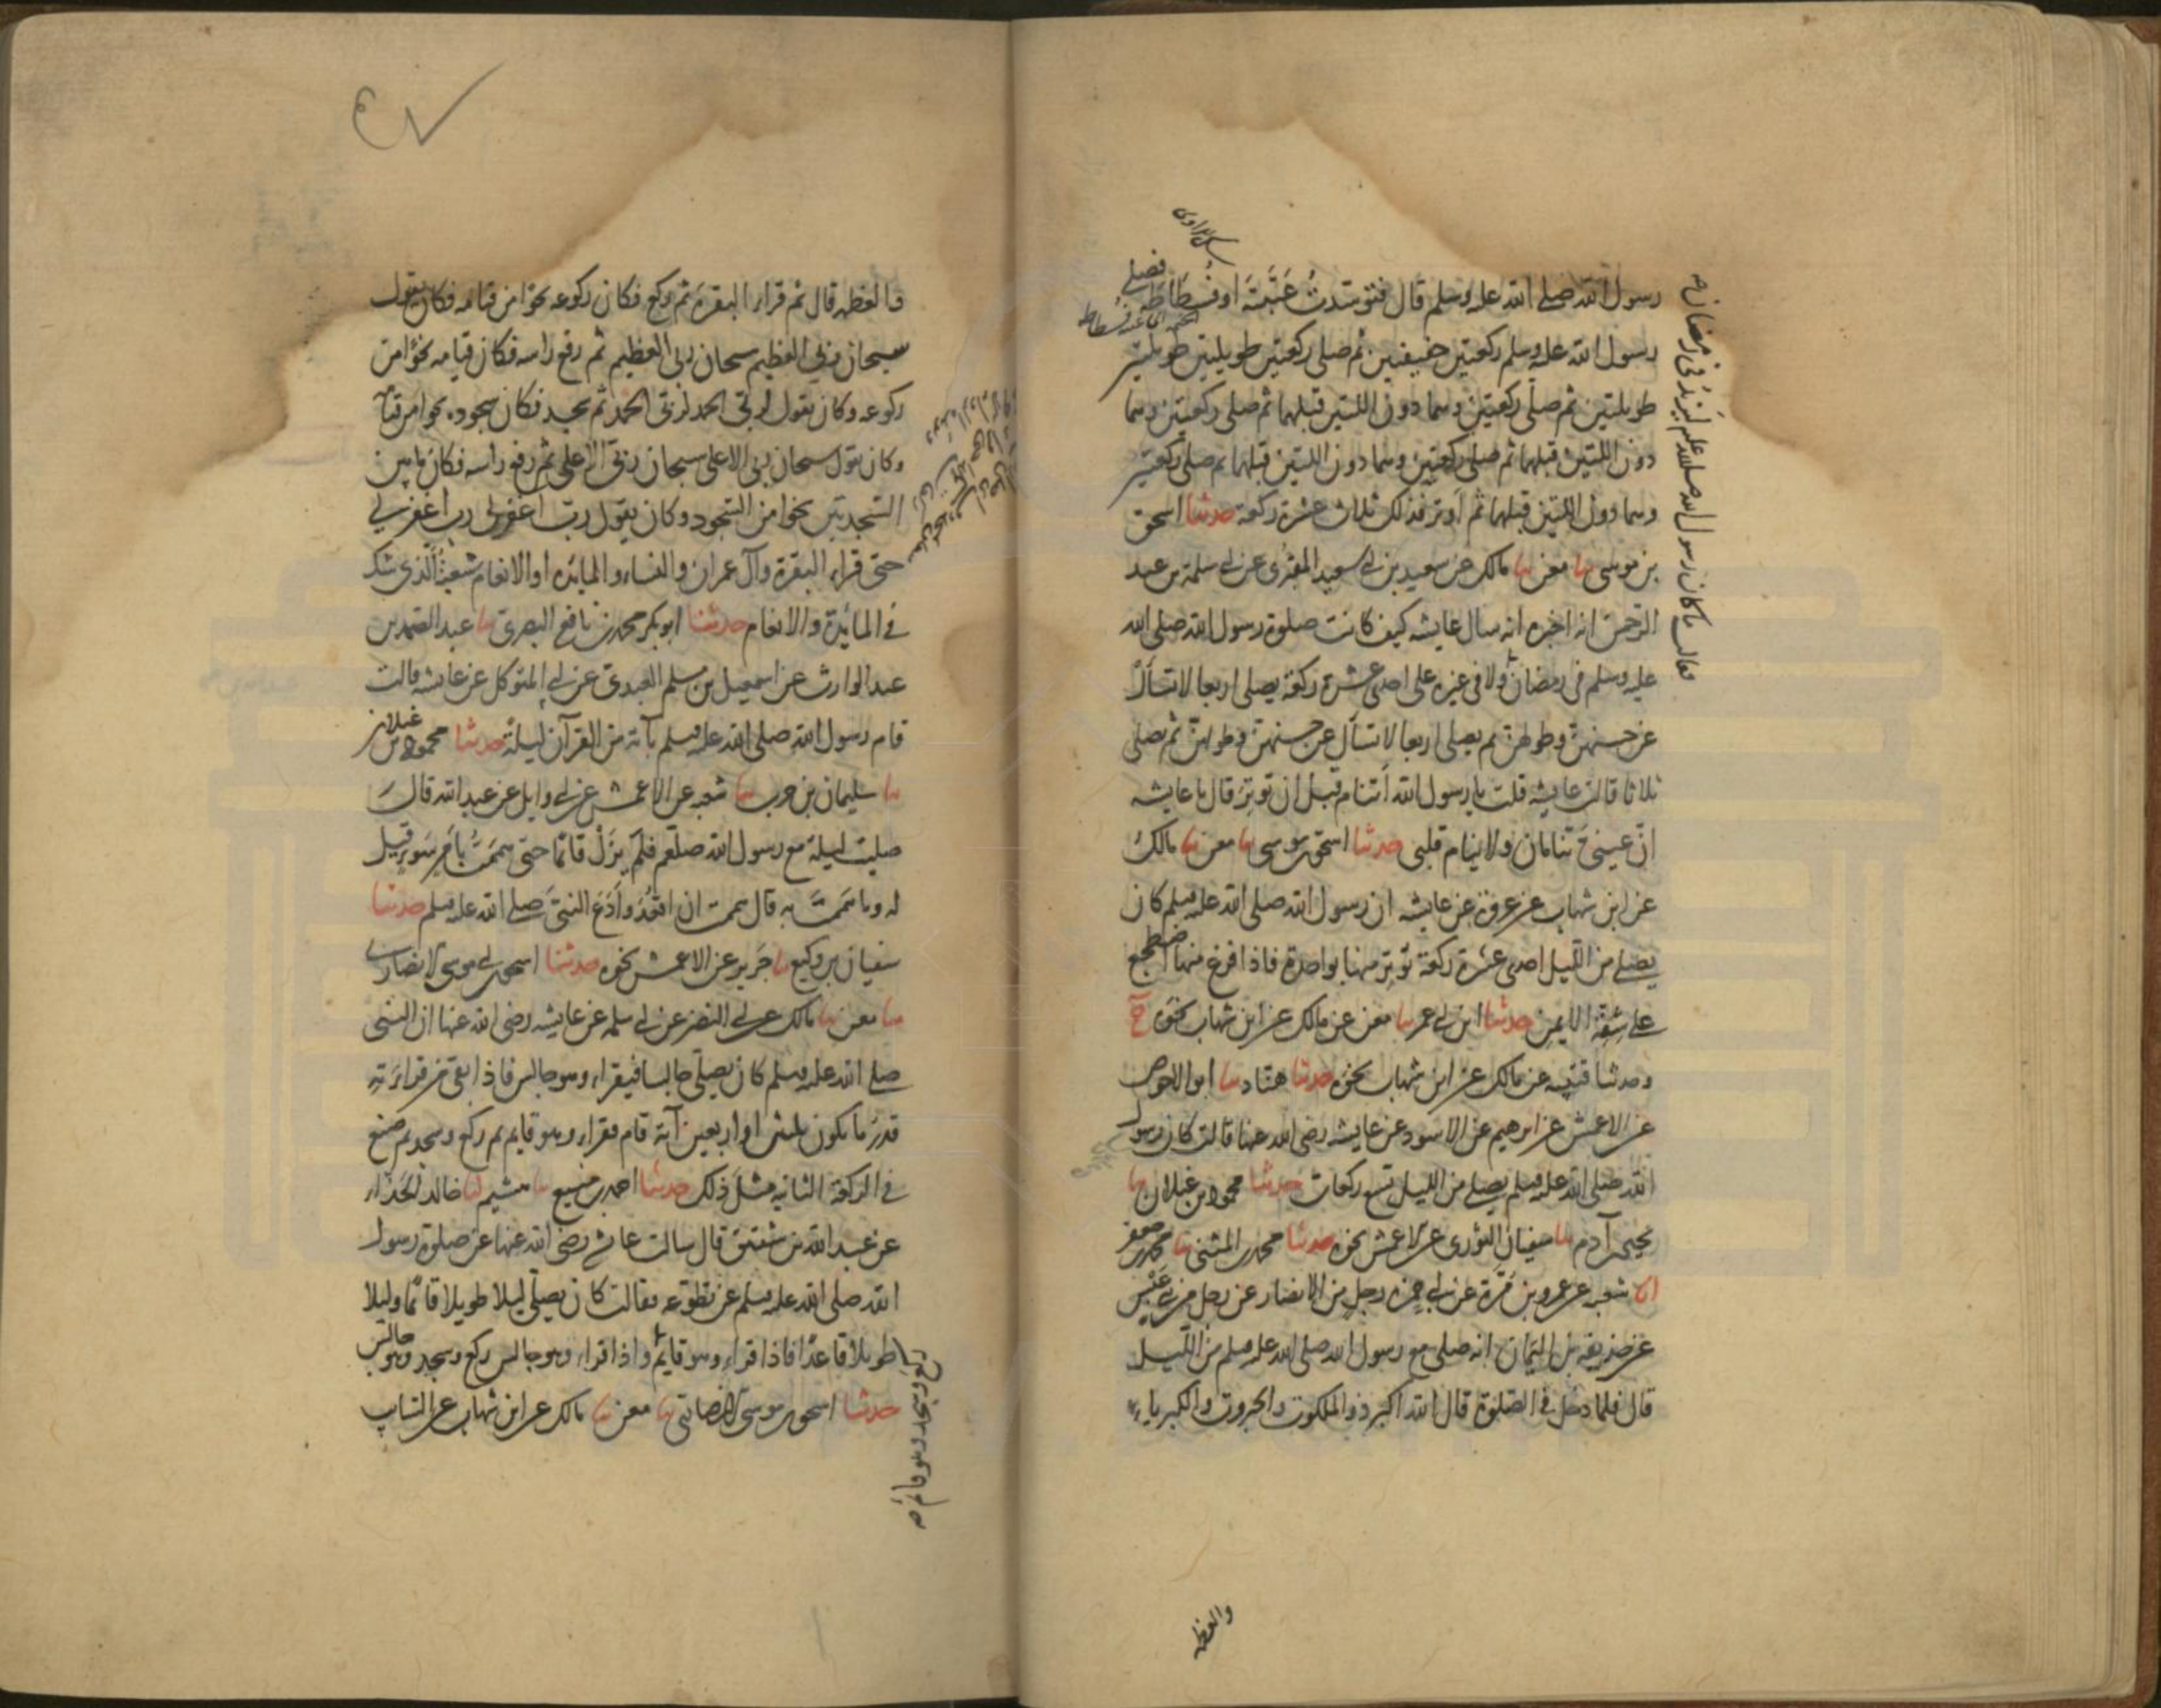 رسول الله صلى الله عليه وسلم قال فتوسدت عتبته او فسطاطه فصلى
رسول الله عليه وسلم ركعتين خفيفتين ثم صلى ركعتين طويلتين طويلتين
طويلتين ثم صلى ركعتين وهما دون اللتين قبلهما ثم صلى ركعتين وهما
دون اللتين قبلهما ثم صلى ركعتين وهما دون اللتين قبلهما ثم صلى ركعتين
وهما دون اللتين قبلهما ثم اوتر فذلك ثلاث عشرة ركعة حدثنا اسحق
بن موسى نا معن نا مالك عن سعيد بن ابي سعيد المقبرى عن ابي سلمة بن عبد
الرحمن انه اخبره انه سال عايشه كيف كانت صلوة رسول الله صلى الله
عليه وسلم فى رمضان ولا فى غيره على احدى عشرة ركعة يصلى اربعا لا تسأل
عن حسنهن وطولهن ثم يصلى اربعا لا تسأل عن حسنهن وطولهن ثم يصلى
ثلاثا قالت عايشه قلت يا رسول الله أتنام قبل ان توتر قال يا عايشه
انّ عينىّ تنامان ولا ينام قلبى حدثنا اسحق بن موسى نا معن نا مالك
عن ابن شهاب عن عروة عن عايشه ان رسول الله صلى الله عليه وسلم كان
يصلى من الليل احدى عشرة ركعة توتر منها بواحدة فاذا فرغ منها اضطجع
على شقه الايمن حدثنا ابن ابي عمر نا معن عن مالك عن ابن شهاب نحوه ح
وحدثنا قتيبه عن مالك عن ابن شهاب نحوه حدثنا هناد نا ابو الاحوص
عن الاعمش عن ابرهيم عن الاسود عن عايشه رضى الله عنها قالت كان رسول
الله صلى الله عليه وسلم يصلى من الليل تسع ركعات حدثنا محمود بن غيلان نا
يحيى بن آدم نا سفيان الثورى عن الاعمش نحوه حدثنا محمد بن المثنى نا محمد بن جعفر
انا شعبه عن عمرو بن مرة عن ابي حمزه رجل من الانصار عن رجل من بنى عبس
عن حذيفه بن اليمان انه صلى مع رسول الله صلى الله عليه وسلم من الليل
قال فلما دخل فى الصلوة قال الله اكبر ذو الملكوت والجبروت والكبرياء
والعظمه
فقالت ما كان رسول الله صلى الله عليه وسلم ليزيد فى رمضان صح
والعظمه قال ثم قراء البقرة ثم ركع فكان ركوعه نحوا من قيامه فكان يقول
سبحان ربى العظيم سبحان ربى العظيم ثم رفع راسه فكان قيامه نحوا من
ركوعه وكان يقول لربى الحمد لربى الحمد ثم سجد فكان سجوده نحوا من قيامه
وكان يقول سبحان ربى الاعلى سبحان ربى الاعلى ثم رفع راسه فكان ما بين
السجدتين نحوا من السجود وكان يقول رب اغفر لى رب اغفر لي
حتى قراء البقرة وآل عمران والنساء والمائده او الانعام شعبة الذى شك
فى المائدة والانعام حدثنا ابو بكر محمد بن نافع البصرى نا عبد الصمد بن
عبد الوارث عن اسمعيل بن مسلم العبدى عن ابي المتوكل عن عايشه قالت
قام رسول الله صلى الله عليه وسلم بآية من القرآن ليلة حدثنا محمود بن غيلان
نا سليمان بن حرب نا شعبه عن الاعمش عن ابي وايل عن عبد الله قال
صليت ليلة مع رسول الله صلعم فلم يزل قائما حتى هممت بامر سوء قيل
له وما هممت به قال هممت ان اقعد وأدع النبى صلى الله عليه وسلم حدثنا
سفيان بن وكيع نا جرير عن الاعمش نحوه حدثنا اسحق بن موسى الانصارى
نا معن نا مالك عن ابي النضر عن ابي سلمه عن عايشه رضى الله عنها ان النبى
صلى الله عليه وسلم كان يصلى جالسا فيقراء وهو جالس فاذا بقى من قراءته
قدر ما يكون ثلثين او اربعين آية قام فقراء وهو قايم ثم ركع وسجد ثم صنع
فى الركعة الثانيه مثل ذلك حدثنا احمد بن منيع نا هشيم انا خالد الحذاء
عن عبد الله بن شقيق قال سالت عائشه رضى الله عنها عن صلوة رسول
الله صلى الله عليه وسلم عن تطوعه فقالت كان يصلى ليلا طويلا قائما وليلا
طويلا قاعدا فاذا قراء وهو قايم واذا قراء وهو جالس ركع وسجد وهو جالس
حدثنا اسحق بن موسى الانصارى نا معن نا مالك عن ابن شهاب عن السائب